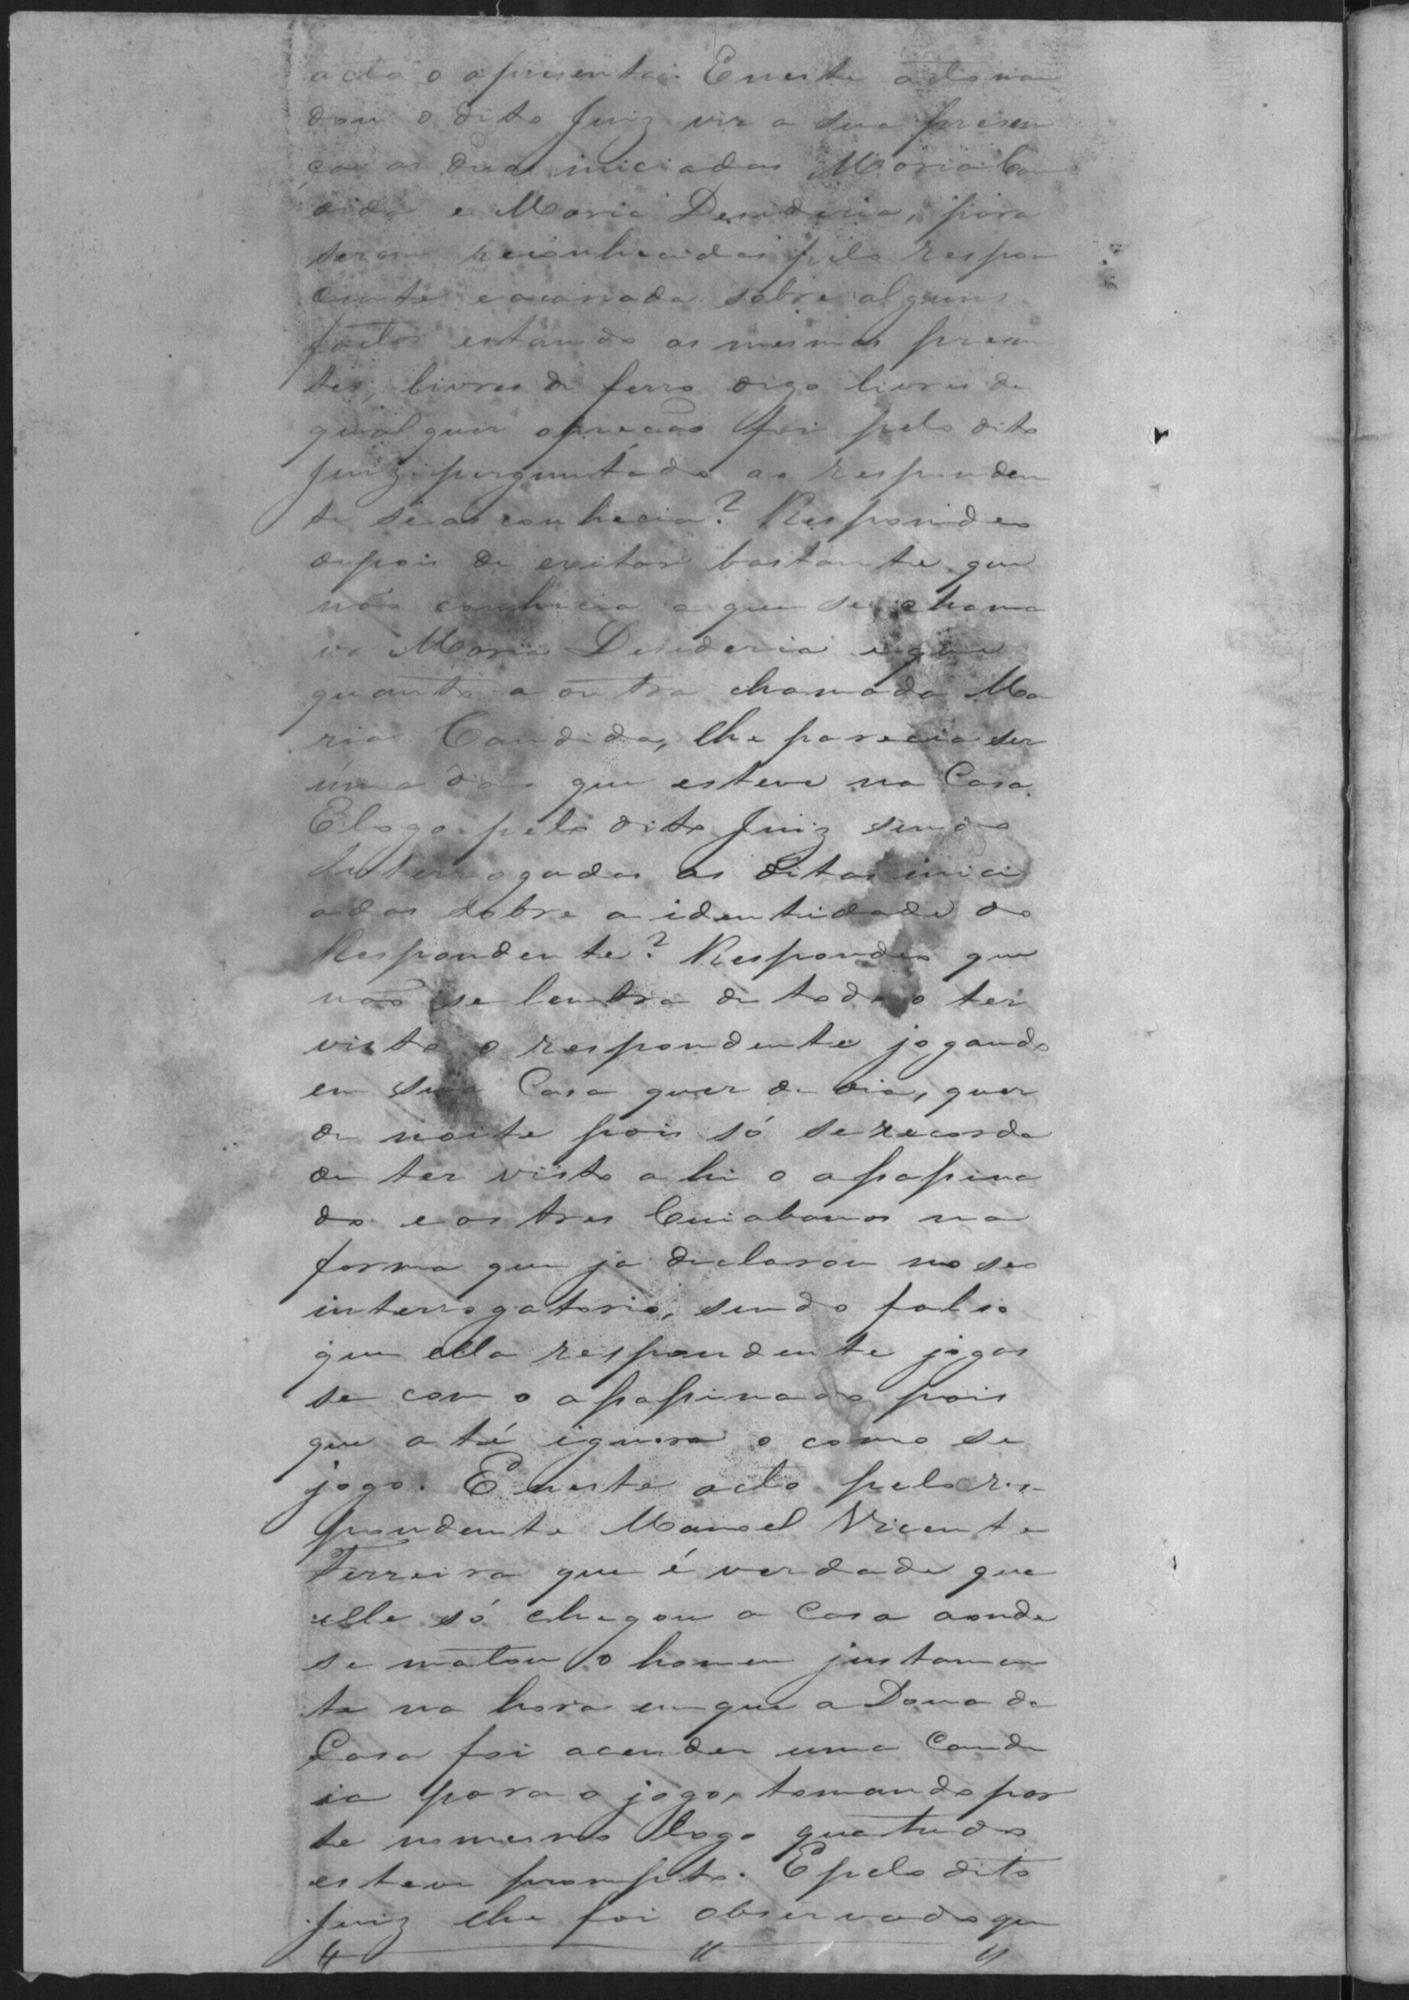 acto o apresentei. E neste acto man
dou o dito Juiz vir a sua presen
ça as duas iniciadas Maria Can
dida e Maria Desideria, para
serem reconhecidas pelo respon
dente e acariada sobre alguns
factos estando as mesmas presen
tes, livres de ferro digo livres de
qualquer opreção foi pelo dito
Juiz perguntado ao responden
te se as conhecia? Respondeo
depois de exitar bastante que
não conhecia a que se chama
va Maria Desideria e que
quanto a outra chamada Ma
ria Candida, lhe parecia ser
uma das que esteve na Casa.
E logo pelo dito Juiz sendo
interrogadas as ditas inici
adas sobre a identidade do
Respondente? Respondeo que
não se lembra de todo o ter
visto o respondente jogando
em sua Casa quer de dia, quer
de noite pois só se recorda
de ter visto ahi o assassina
do e os tres Cuiabanos na
forma que ja declarou no seo
interrogatorio, sendo falso
que ella respondente jogas
se com o assassinado pois
que até ignora o como se
joga. E neste acto pelo res
pondente Manoel Vicente
Ferreira que é verdade que
elle só chegou a Casa aonde
se matou o homem justamen
te na hora em que a Dona da
Casa foi acender uma Cande
ia para o jogo, tomando par
te no mesmo logo que tudo
esteve prompto. E pelo dito
Juiz lhe foi observado que